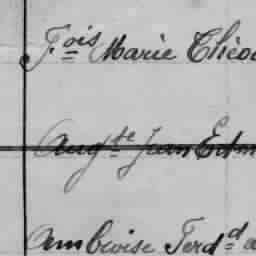 F.ois Marie Théod
Aug.te Jean Edm
Ambroise Ferd.d a